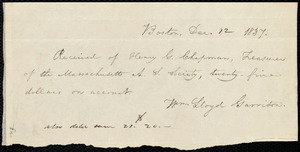 Boston, Dec. 12 1837.
Received of Henry G. Chapman, Treasurer
of the Massachusetts A. S. Society, twenty-five
dollars on account
Wm. Lloyd Garrison.
also